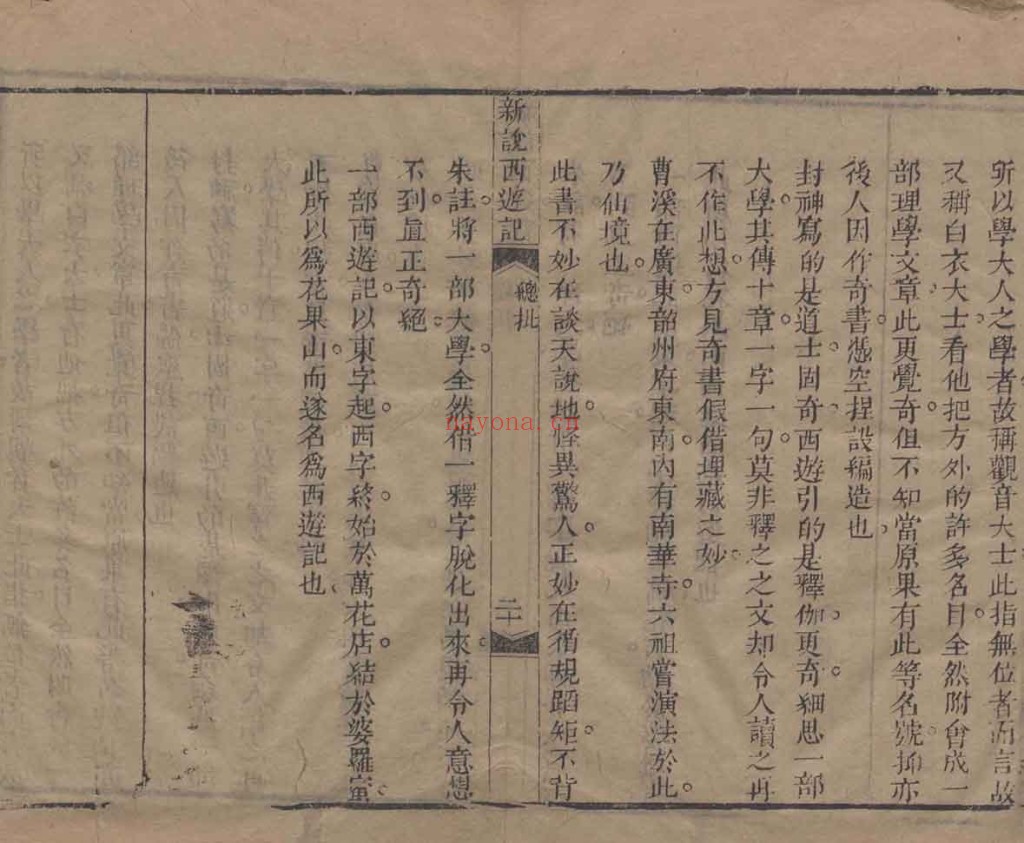 所以學大人之學者故稱觀音大士此指無位者而言故
又稱白衣大士看他把方外的許多名目全然附會成一
部理學文章此更覺奇但不知當原果有此等名號抑亦
後人因作奇書憑空捏設稱造也
封神寫的是道士固奇西遊引的是釋伽更奇細思一部
大學其傳十章一字一句莫非釋之之文却令人讀之再
不作此想方見奇書假借埋藏之妙
曹溪在廣東韶州府東南內有南華寺六祖嘗演法於此
乃仙境也
此書不妙在談天說地怪異驚人正妙在循規蹈矩不背
新說西遊記
總批
二十
朱註將一部大學全然借一釋字脫化出來再令人意想
不到眞正奇絕
一部西遊記以東字起西字終始於萬花店結於婆羅窰
此所以爲花果山而遂名爲西遊記也
nayona.cn